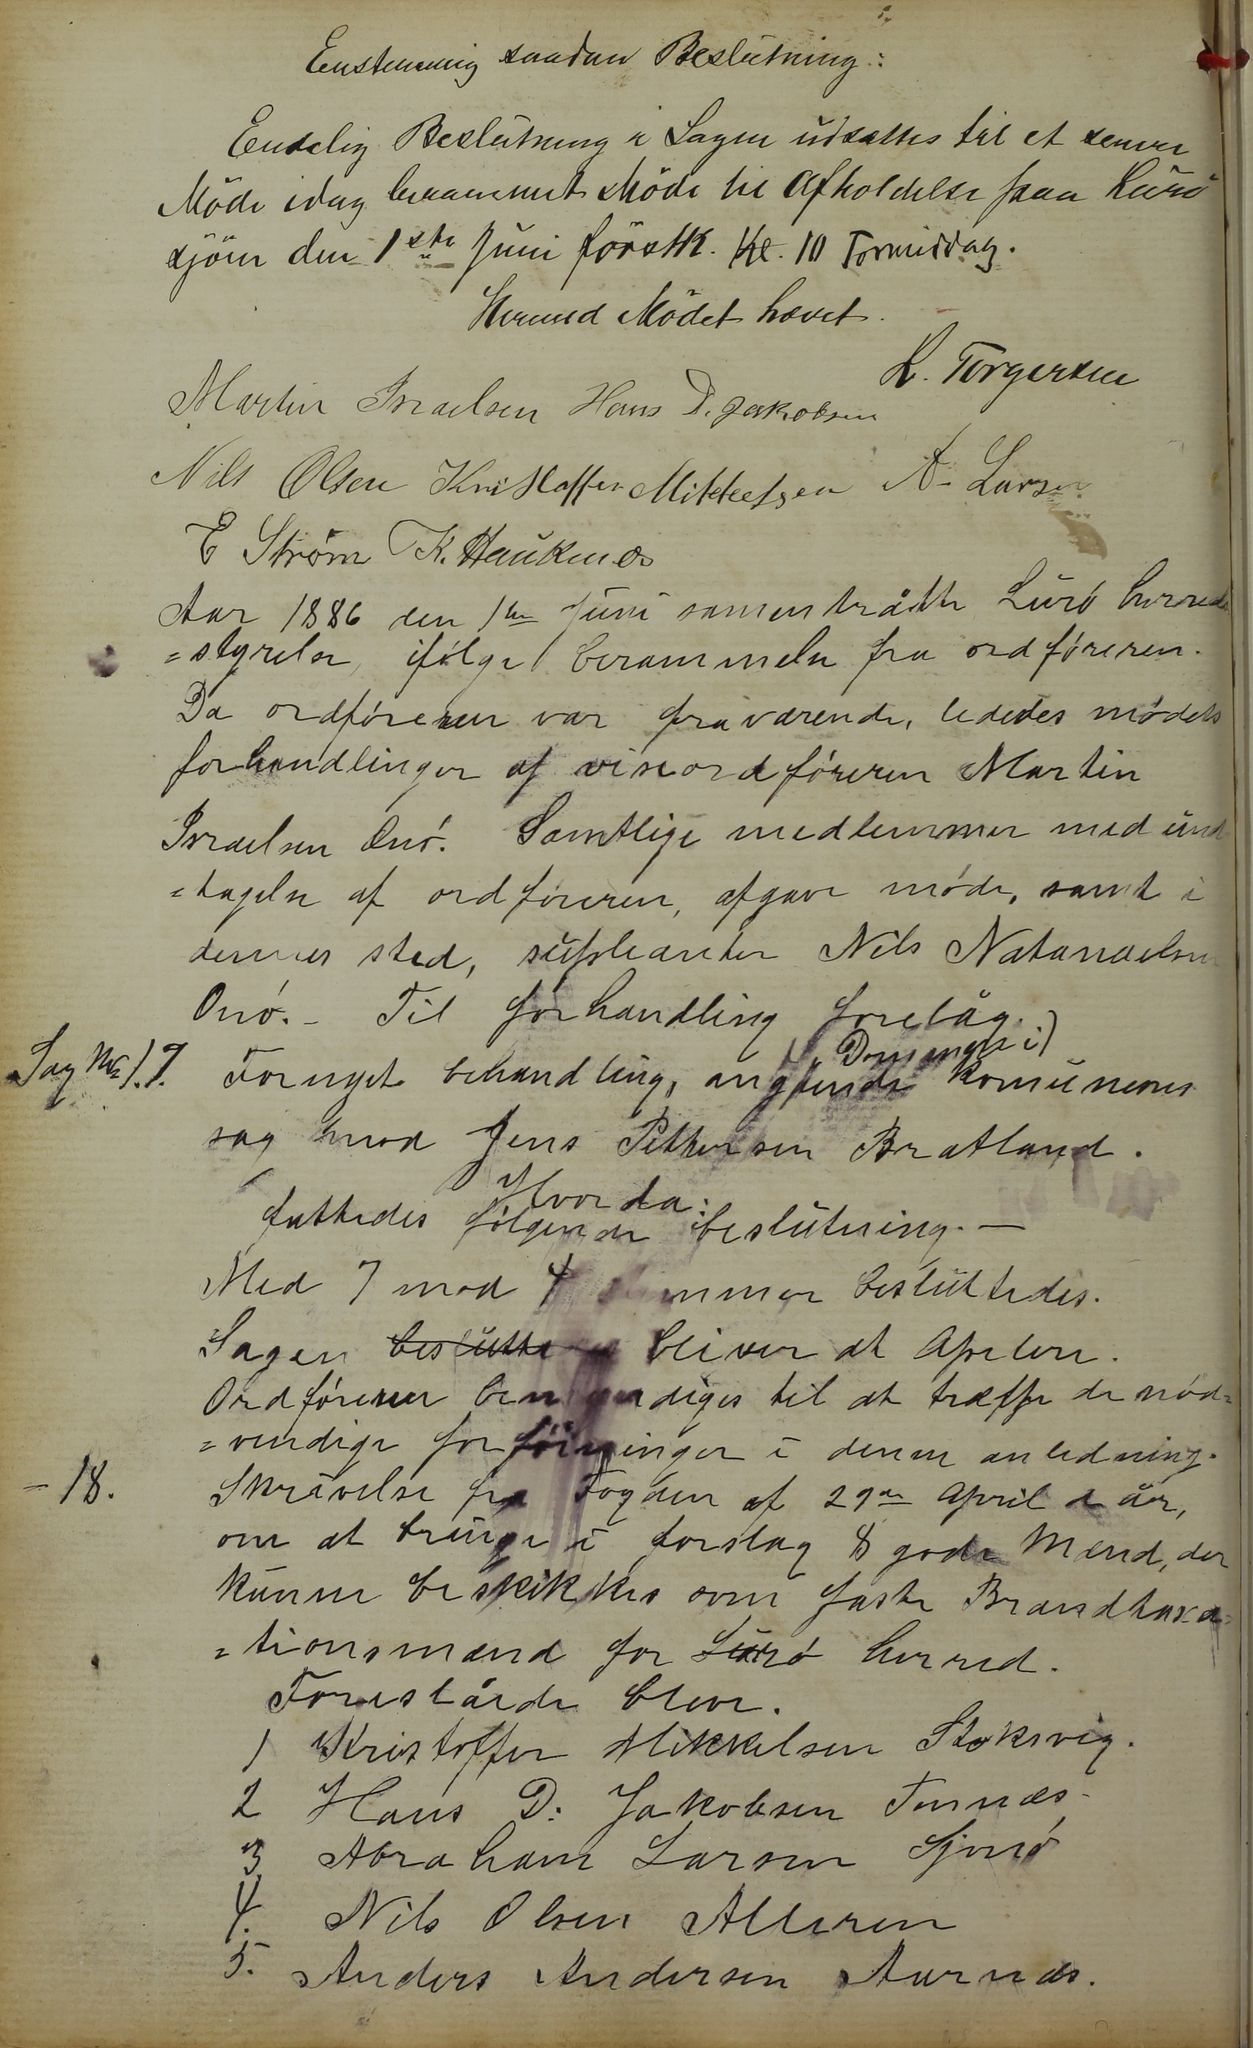 Eenstemmig saadan Beslutning:
Endelig Beslutning i Sagen udsættes til et senere
Möde idag berammet Möde til Afholdelse paa Lurö
sjöen den 1ste Juni förstk. Kl. 10 Formiddag.
Hermed Mödet hævet.
L. Torgersen
Martin Israelsen Hans D. Jakobsen
Nils Olsen Kristoffer Mikkelsen A. Larsen
E Strøm K. Hauknæs
Aar 1886 den 1ste Juni sammentrådte Lurø herreds
=styrelse, ifølge berammelse fra ordføreren.
Da ordføreren var fraværende, lededes mødets
forhandlinger af viseordføreren Martin
Israelsen Onø. Samtlige medlemmer med und
=tagelse af ordføreren, afgave møde, samt i
dennes sted, supleanten Nils Natanaelsen
Onø. - Til forhandling forelåg.
Sag No 17. Fornyet behandling, angående Dommen i Komunenes
sag mod Jens Pettersen Bratland.
Hvorda:
fattedes følgende beslutning. —
Med 7 mod 4 stemmer besluttedes.
Sagen beslutte bliver at Apelere.
Ordføreren bemyndiges til at træffe de nød=
=vendige forføininger i denne anledning.
- 18. Skrivelse fra Fogden af 29de April d år,
om at bringe i forslag 8 gode Mænd, der
kunne beskikkes som faste Brandtaxa=
=tionsmænd for Lurø herred.
Foreslåede bleve.
1 Kristoffer Mikkelsen Stoksvig.
2 Hans D. Jakobsen Tonnæs.
3 Abraham Larsen Sjonø
4. Nils Olsen Alderen
5. Anders Andersen Aurnæs.